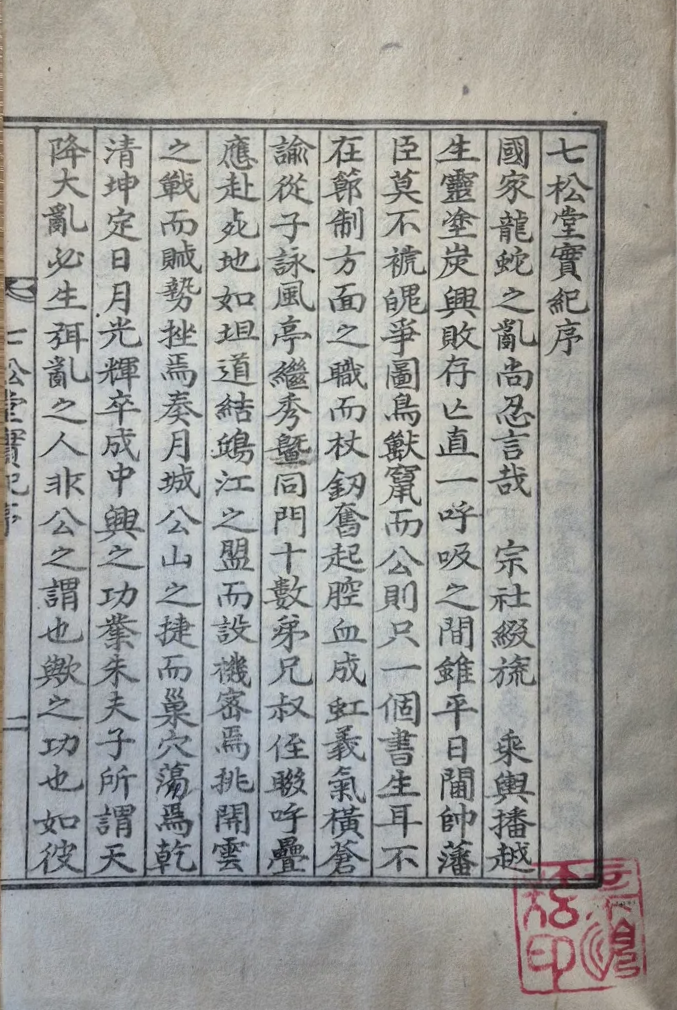 七松堂實紀序
國家龍蛇之亂尚忍言哉 宗社綴旒 乘輿播越
生靈塗炭興敗存亡直一呼吸之間雖平日閫帥藩
臣莫不褫魄爭圖鳥獸竄而公則只一個書生耳不
在節制方面之職而杖釰奮起腔血成虹義氣橫蒼
諭從子詠風亭繼秀曁同門十數弟兄叔侄睽呼疊
應赴死地如坦道結鴻江之盟而設機密焉挑開雲
之戰而賊勢挫焉奏月城公山之捷而巢穴蕩焉乾
清坤定日月光輝卒成中興之功業朱夫子所謂天
降大亂必生弭亂之人非公之謂也歟之功也如彼
七松堂實紀序
一